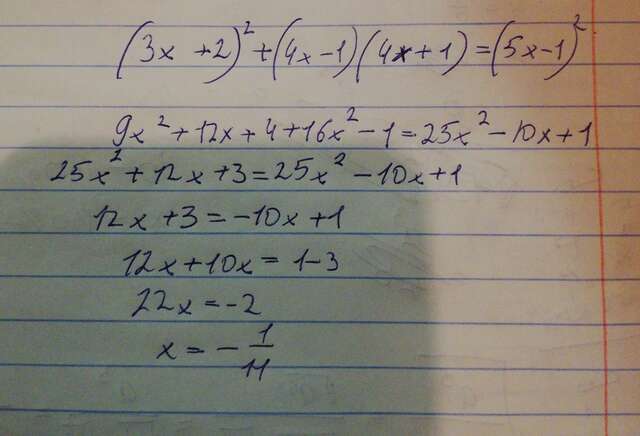 (3x+2)²+(4x-1)(4x+1)=(5x-1)²
9x²+12x+4+16x²-1=25x²-10x+1
25x²+12x+3=25x²-10x+1
12x+3=-10x+1
12x+10x=1-3
22x=-2
x=-1/11